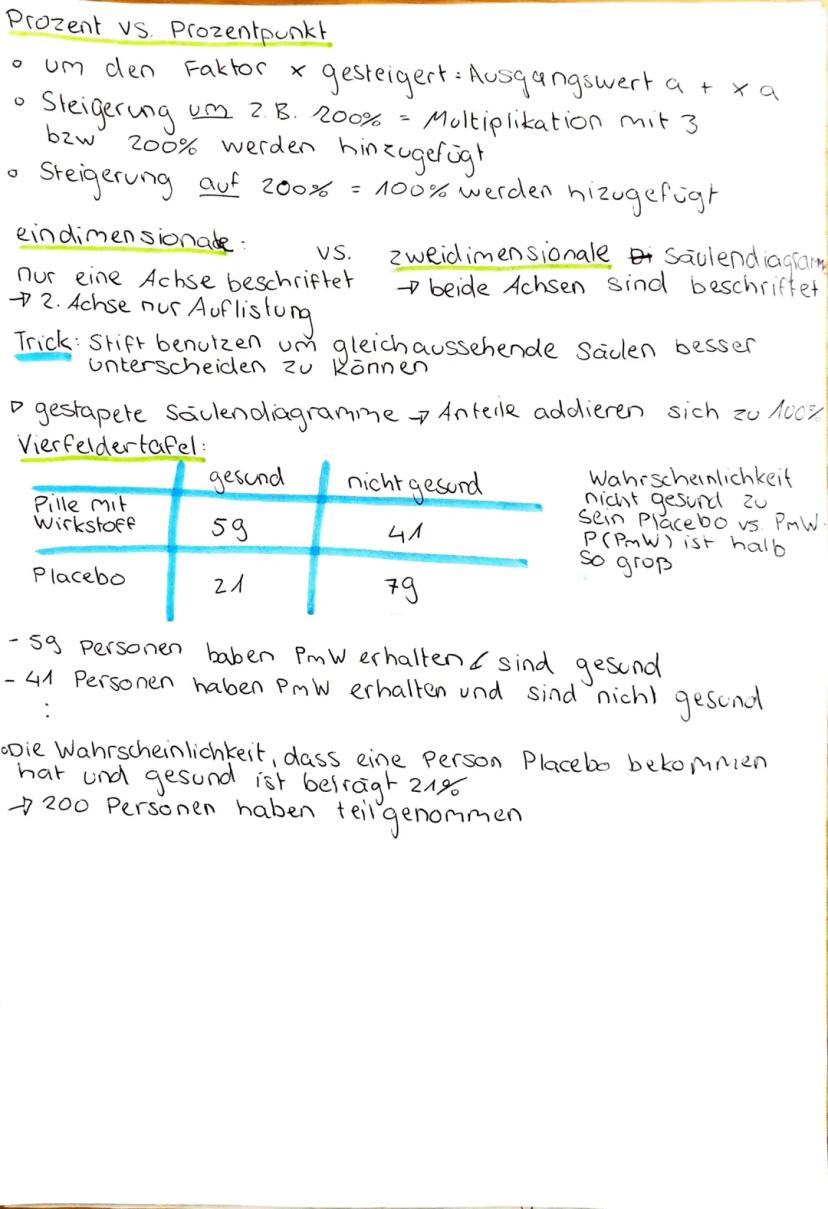 Prozent vs. Prozentpunkt
◦ um den Faktor x gesteigert: Ausgangswert a + x a
◦ Steigerung um z.B. 200% = Multiplikation mit 3
bzw 200% werden hinzugefügt
◦ Steigerung auf 200% = 100% werden hizugefügt
eindimensionale: vs. zweidimensionale Säulendiagramm
nur eine Achse beschriftet → beide Achsen sind beschriftet
→ 2. Achse nur Auflistung
Trick: Stift benutzen um gleichaussehende Säulen besser
unterscheiden zu können
▷ gestapete Säulendiagramme → Anteile addieren sich zu 100%
Vierfeldertafel:
gesund nicht gesund
Pille mit
Wirkstoff 59 41
Placebo 21 79
Wahrscheinlichkeit
nicht gesund zu
sein Placebo vs. PmW.
P(PmW) ist halb
so groß
- 59 Personen haben PmW erhalten & sind gesund
- 41 Personen haben PmW erhalten und sind nicht gesund
⋮
◦ Die Wahrscheinlichkeit, dass eine Person Placebo bekommen
hat und gesund ist beträgt 21%
→ 200 Personen haben teilgenommen